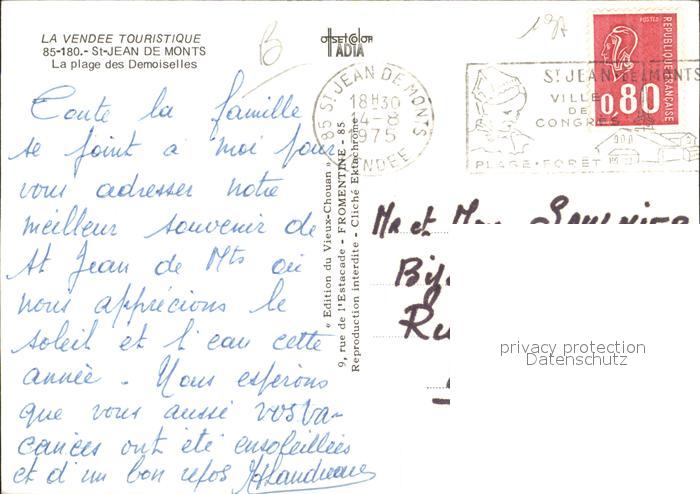 LA VENDEE TOURISTIQUE
85-180.- St-JEAN DE MONTS
La plage des Demoiselles
OFFSET COLOR
IADIA
B
Toute la famille
se joint a moi pour
vous adresser notre
meilleur souvenir de
St Jean de Mts où
nous apprécions le
soleil et l'eau cette
année. Nous espérons
que vous aussi vos va-
cances ont été ensoleillées
et d'un bon repos
85 ST JEAN DE MONTS
18H30
4-8
1975
VENDEE
ST JEAN DE MONTS
VILLE
DE
CONGRES
PLAGE-FORÊT
POSTES
REPUBLIQUE FRANÇAISE
0,80
« Edition du Vieux-Chouan »
9, rue de l'Estacade - FROMENTINE - 85
Reproduction interdite - Cliché Ektachrome
Mr et Mme
privacy protection
Datenschutz